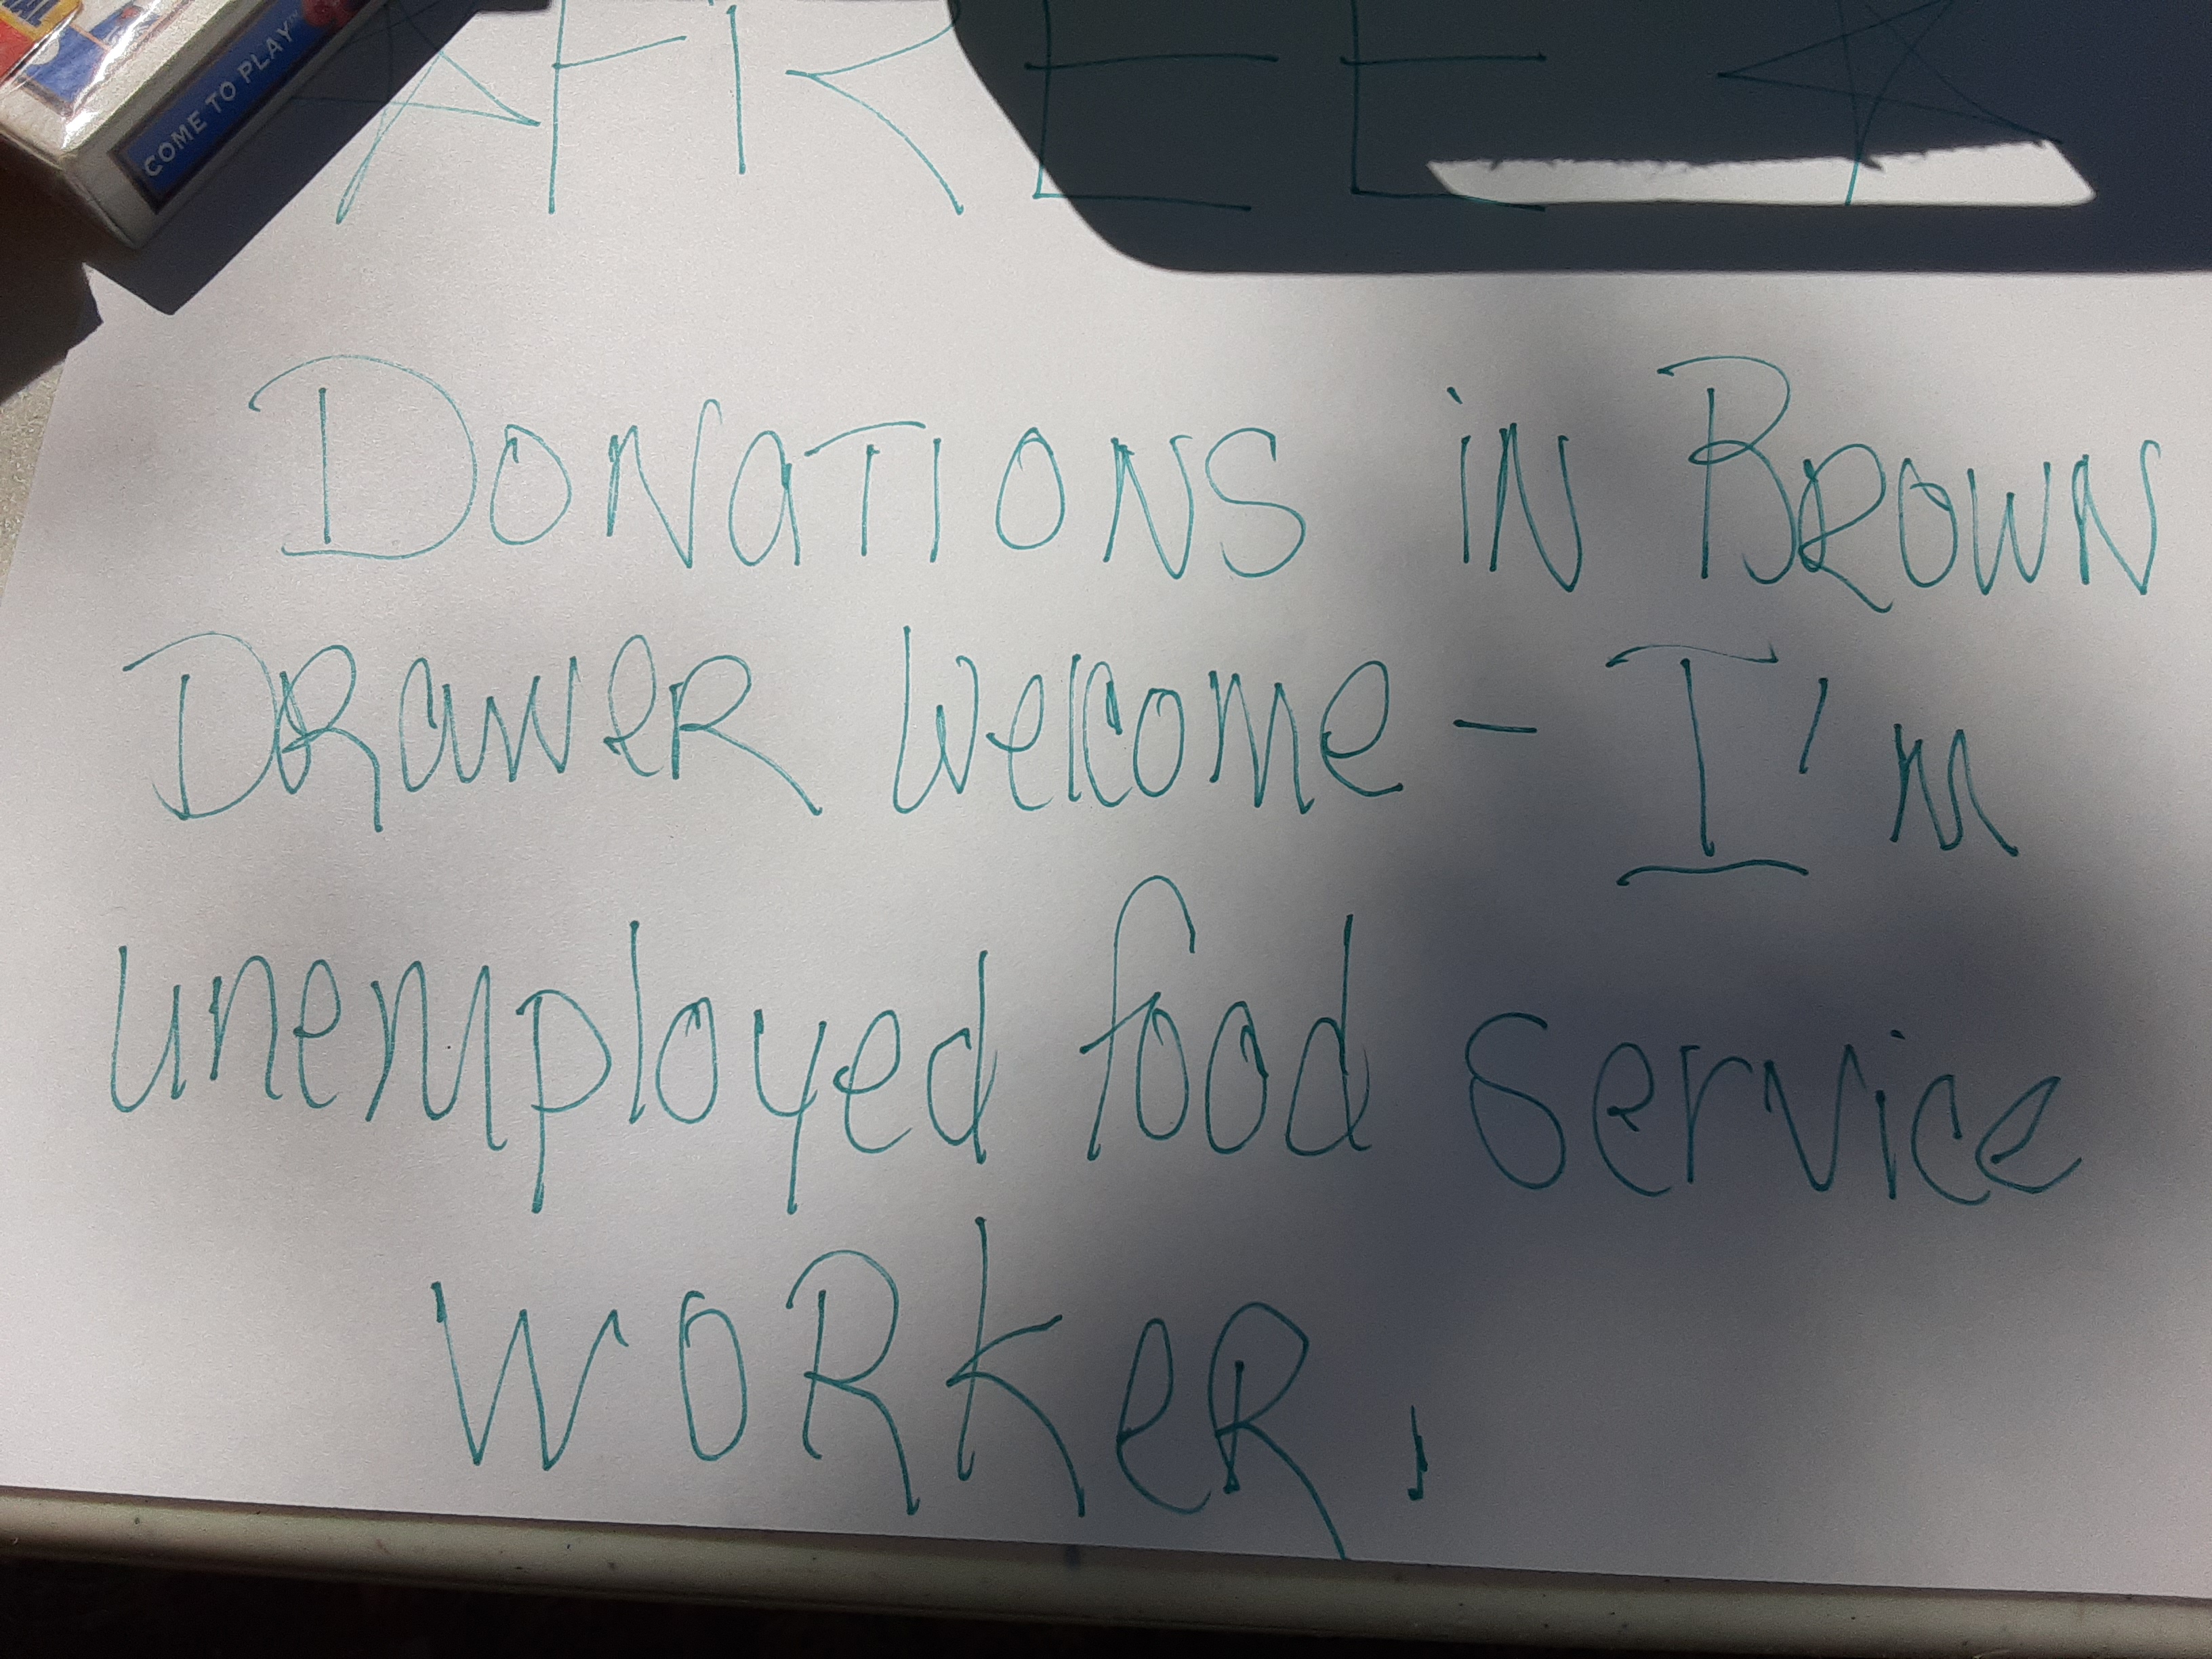 COME TO PLAY™
FREE
DONATIONS iN BROWN
DRAWER Welcome - I'm
unemployed food service
WORKER.